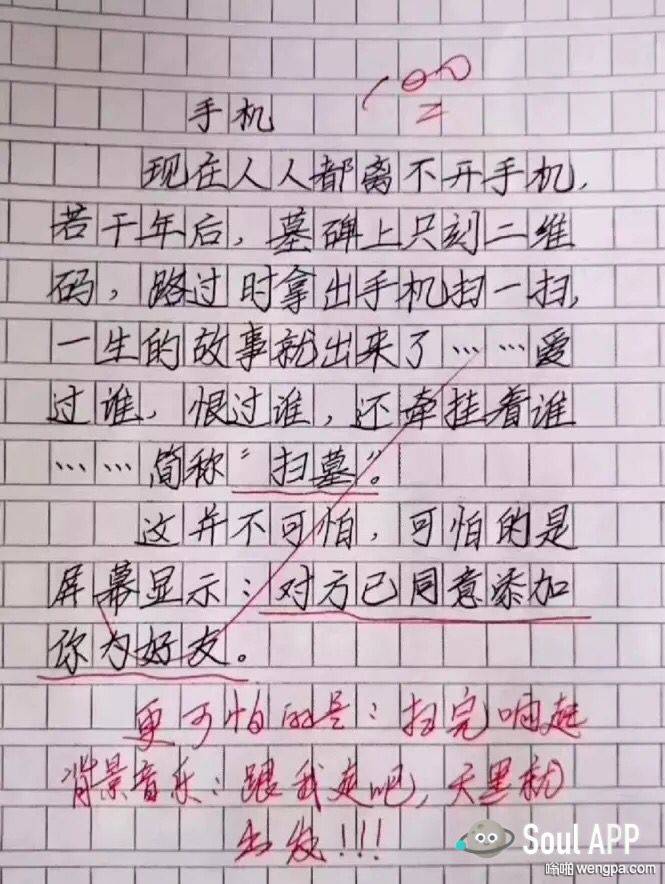 手机
现在人人都离不开手机,
若干年后,墓碑上只刻二维
码,路过时拿出手机扫一扫,
一生的故事就出来了……爱
过谁,恨过谁,还牵挂着谁
……简称“扫墓”。
这并不可怕,可怕的是
屏幕显示:对方已同意添加
你为好友。
更可怕的是:扫完响起
背景音乐:跟我走吧,天黑就
出发!!!
Soul APP
嗡啪 wengpa.com